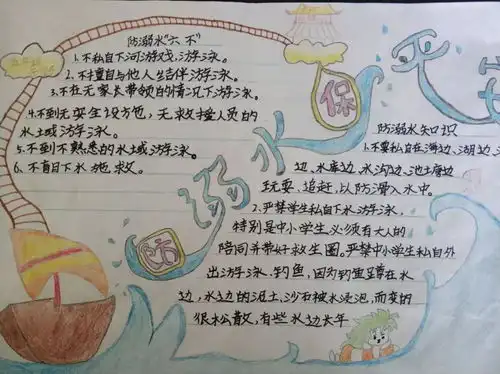 防溺水“六不”
1.不私自下河游戏、游泳。
2.不擅自与他人结伴游泳。
3.不在无家长带领的情况下游泳。
4.不到无安全设方包，无救撞人员的
水土域游泳。
5.不到不熟悉的水土或游泳。
6.不盲目下水施救。
防溺水
保平
防溺水知识
1.不要私自在海边、湖边、
边、水库边、水沟边、池土唐边
玩耍、追赶，以防滑入水中。
2.严禁学生私自下水游泳，
特别是中小学生必须有大人的
陪同并带好救生圈。严禁中小学生私自外
出游泳、钓鱼，因为钓鱼蹲在水
边，水边的泥土、沙石被水浸泡，而变的
很松散，有些水边长年